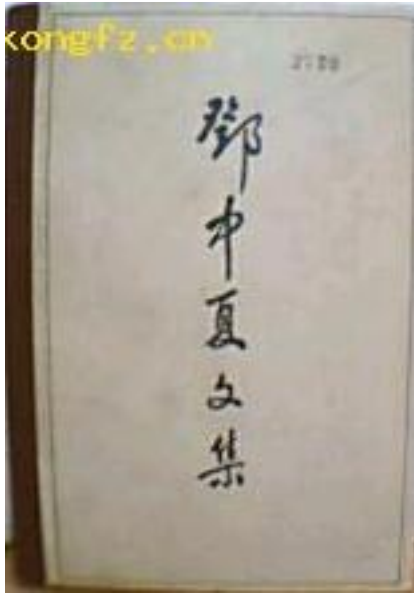 kongfz.cn
鄧中夏文集